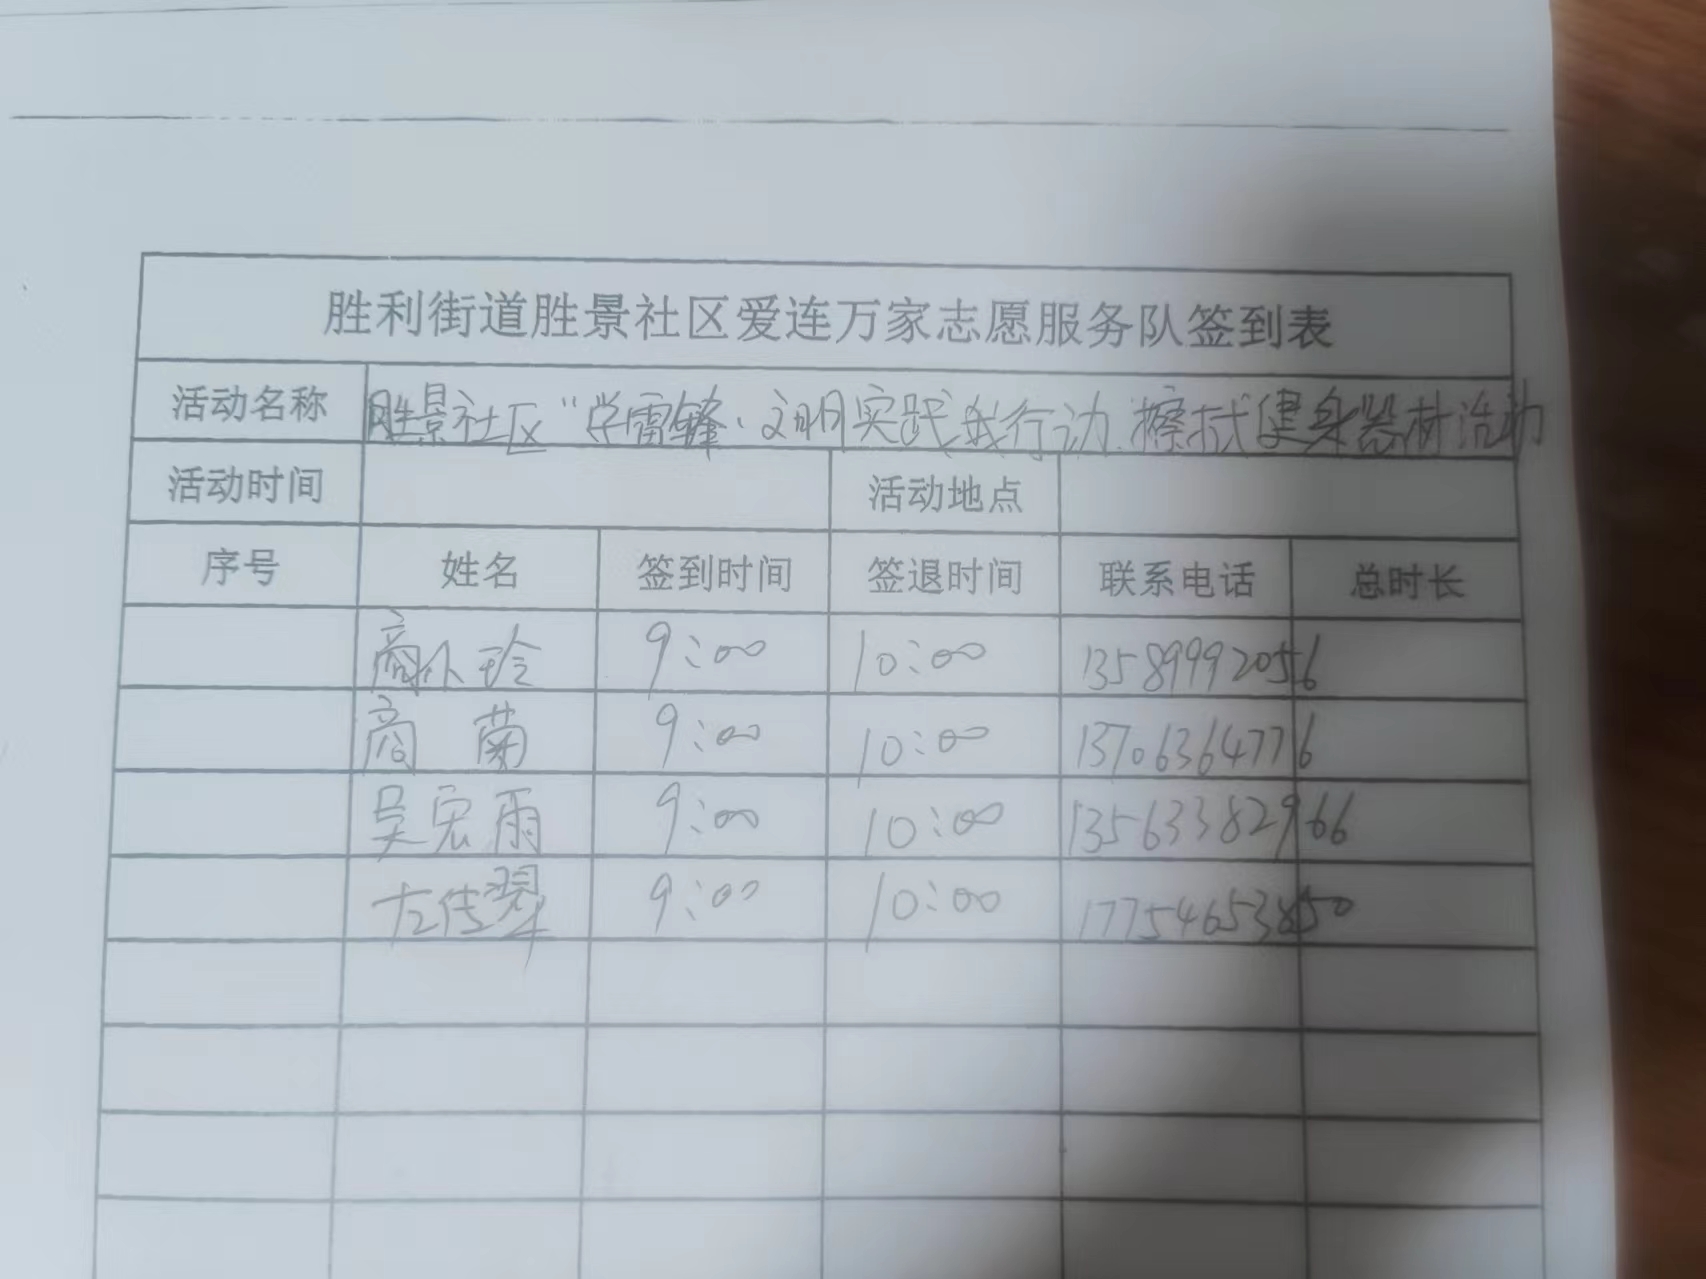 胜利街道胜景社区爱连万家志愿服务队签到表
活动名称 胜景社区“学雷锋·文明实践我行动.擦拭健身器材活动
活动时间 活动地点
序号 姓名 签到时间 签退时间 联系电话 总时长
商小玲 9:00 10:00 13589992056
商菊 9:00 10:00 13706364776
吴宏雨 9:00 10:00 13563382966
左传翠 9:00 10:00 17754653850